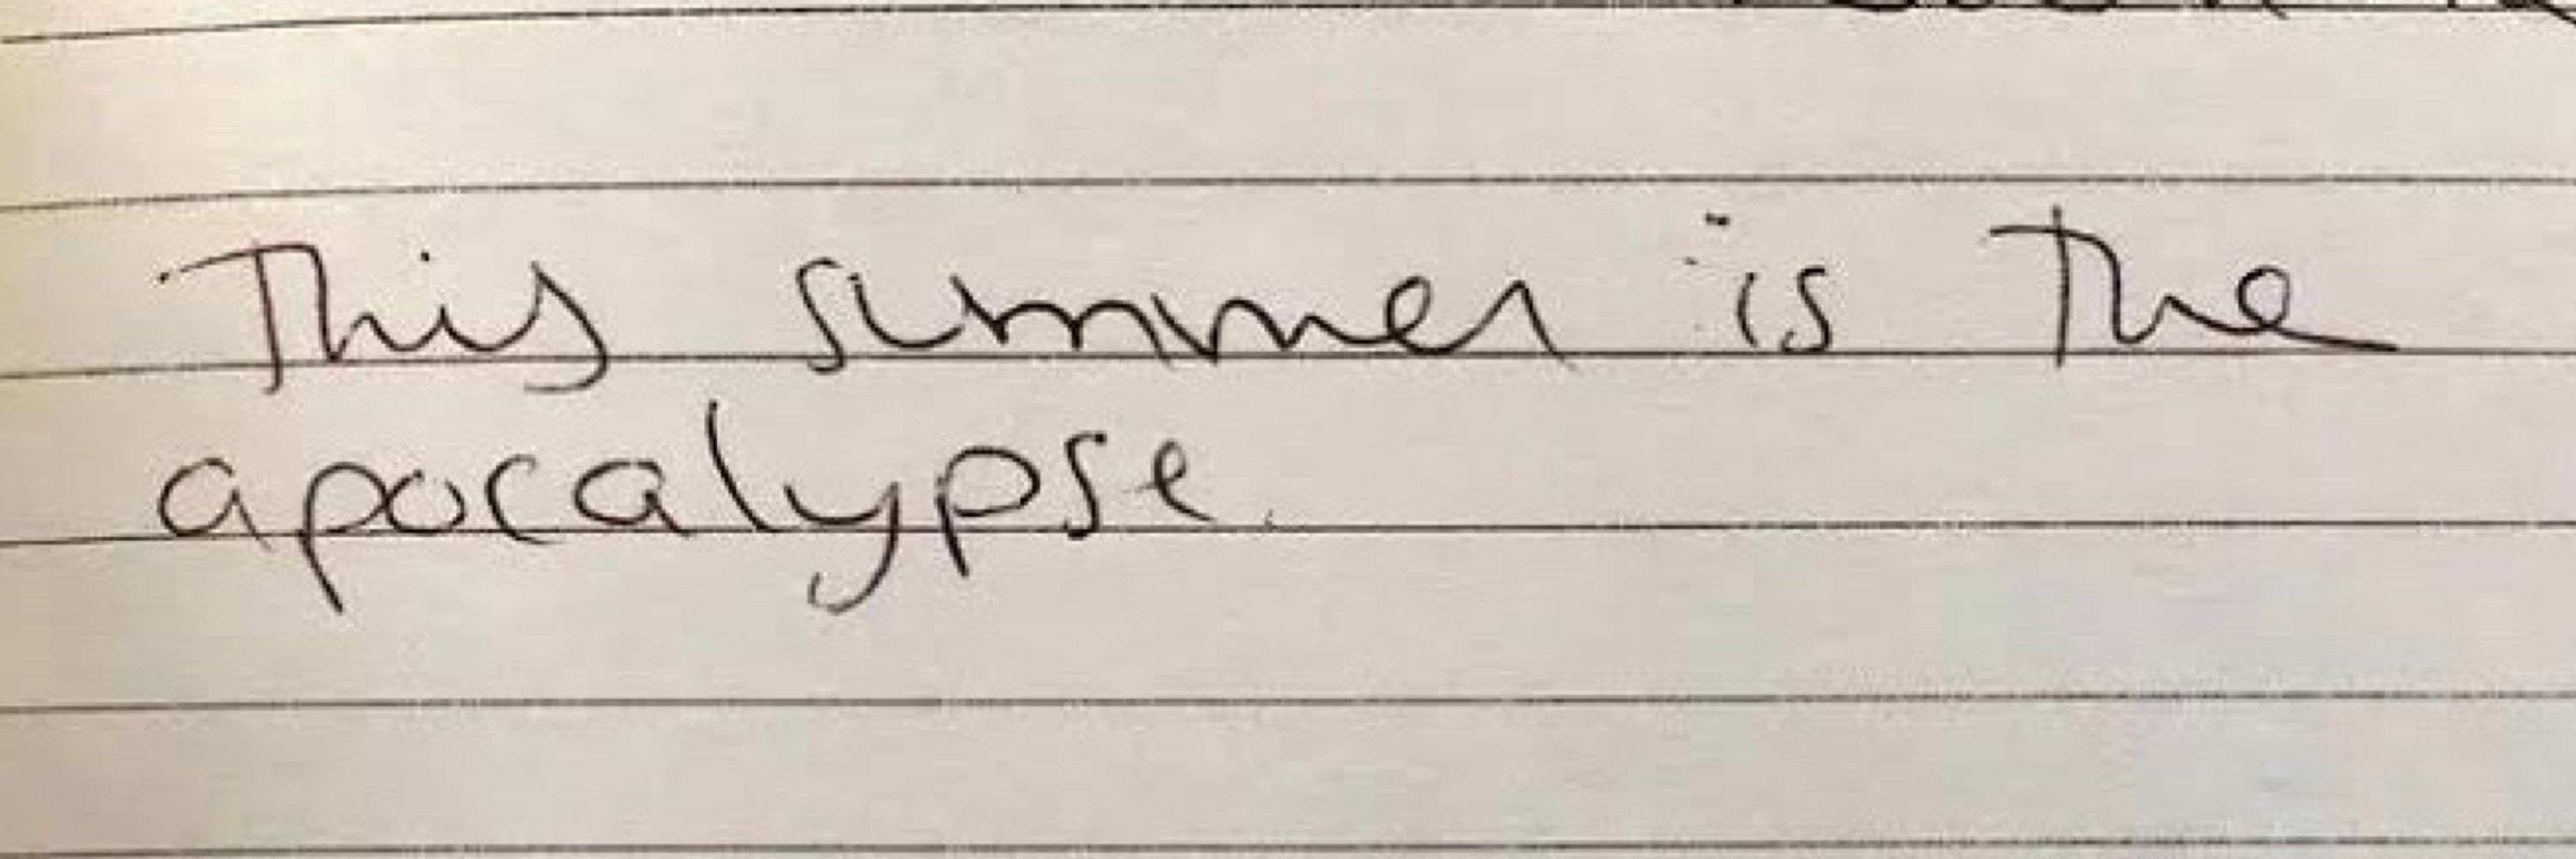 This summer is the
apocalypse.